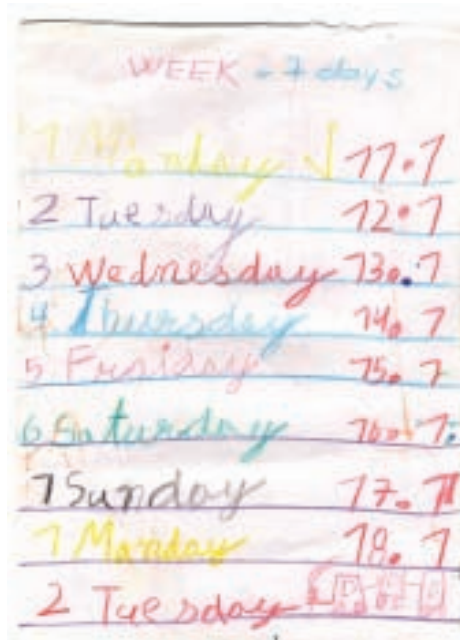 WEEK - 7 days
1 Monday 11.1
2 Tuesday 12.1
3 Wednesday 13.1
4 Thursday 14.1
5 Friday 15.1
6 Saturday 16.1
7 Sunday 17.1
1 Monday 18.1
2 Tuesday